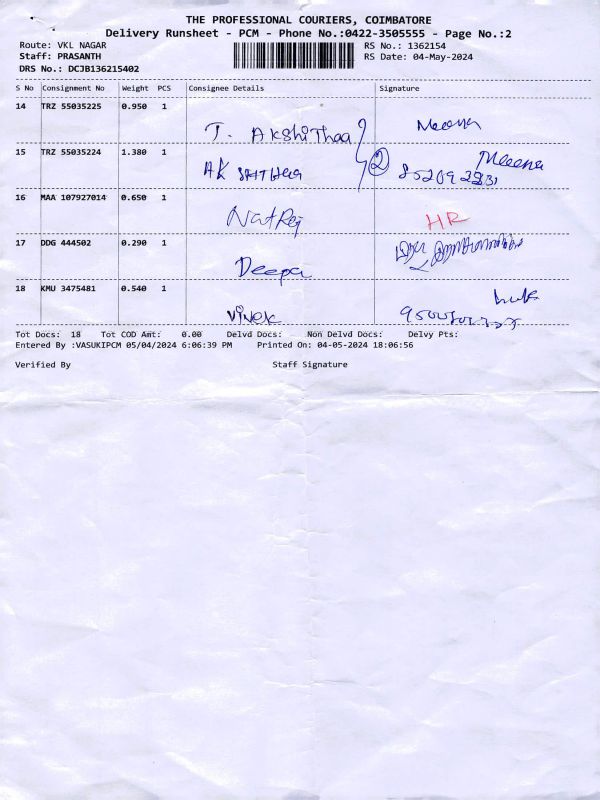 THE PROFESSIONAL COURIERS, COIMBATORE
Delivery Runsheet - PCM - Phone No.:0422-3505555 - Page No.:2
Route: VKL NAGAR RS No.: 1362154
Staff: PRASANTH RS Date: 04-May-2024
DRS No.: DCJB136215402
S No Consignment No Weight PCS Consignee Details Signature
14 TRZ 55035225 0.950 1
T. Akshithaa Meena
15 TRZ 55035224 1.380 1
Akshithaa 2 Meena
16 MAA 107927014 0.650 1
Natraj HR
17 DDG 444502 0.290 1
Deepa
18 KMU 3475481 0.540 1
Vivek
Tot Docs: 18 Tot COD Amt: 0.00 Delvd Docs: Non Delvd Docs: Delvy Pts:
Entered By :VASUKIPCM 05/04/2024 6:06:39 PM Printed On: 04-05-2024 18:06:56
Verified By Staff Signature